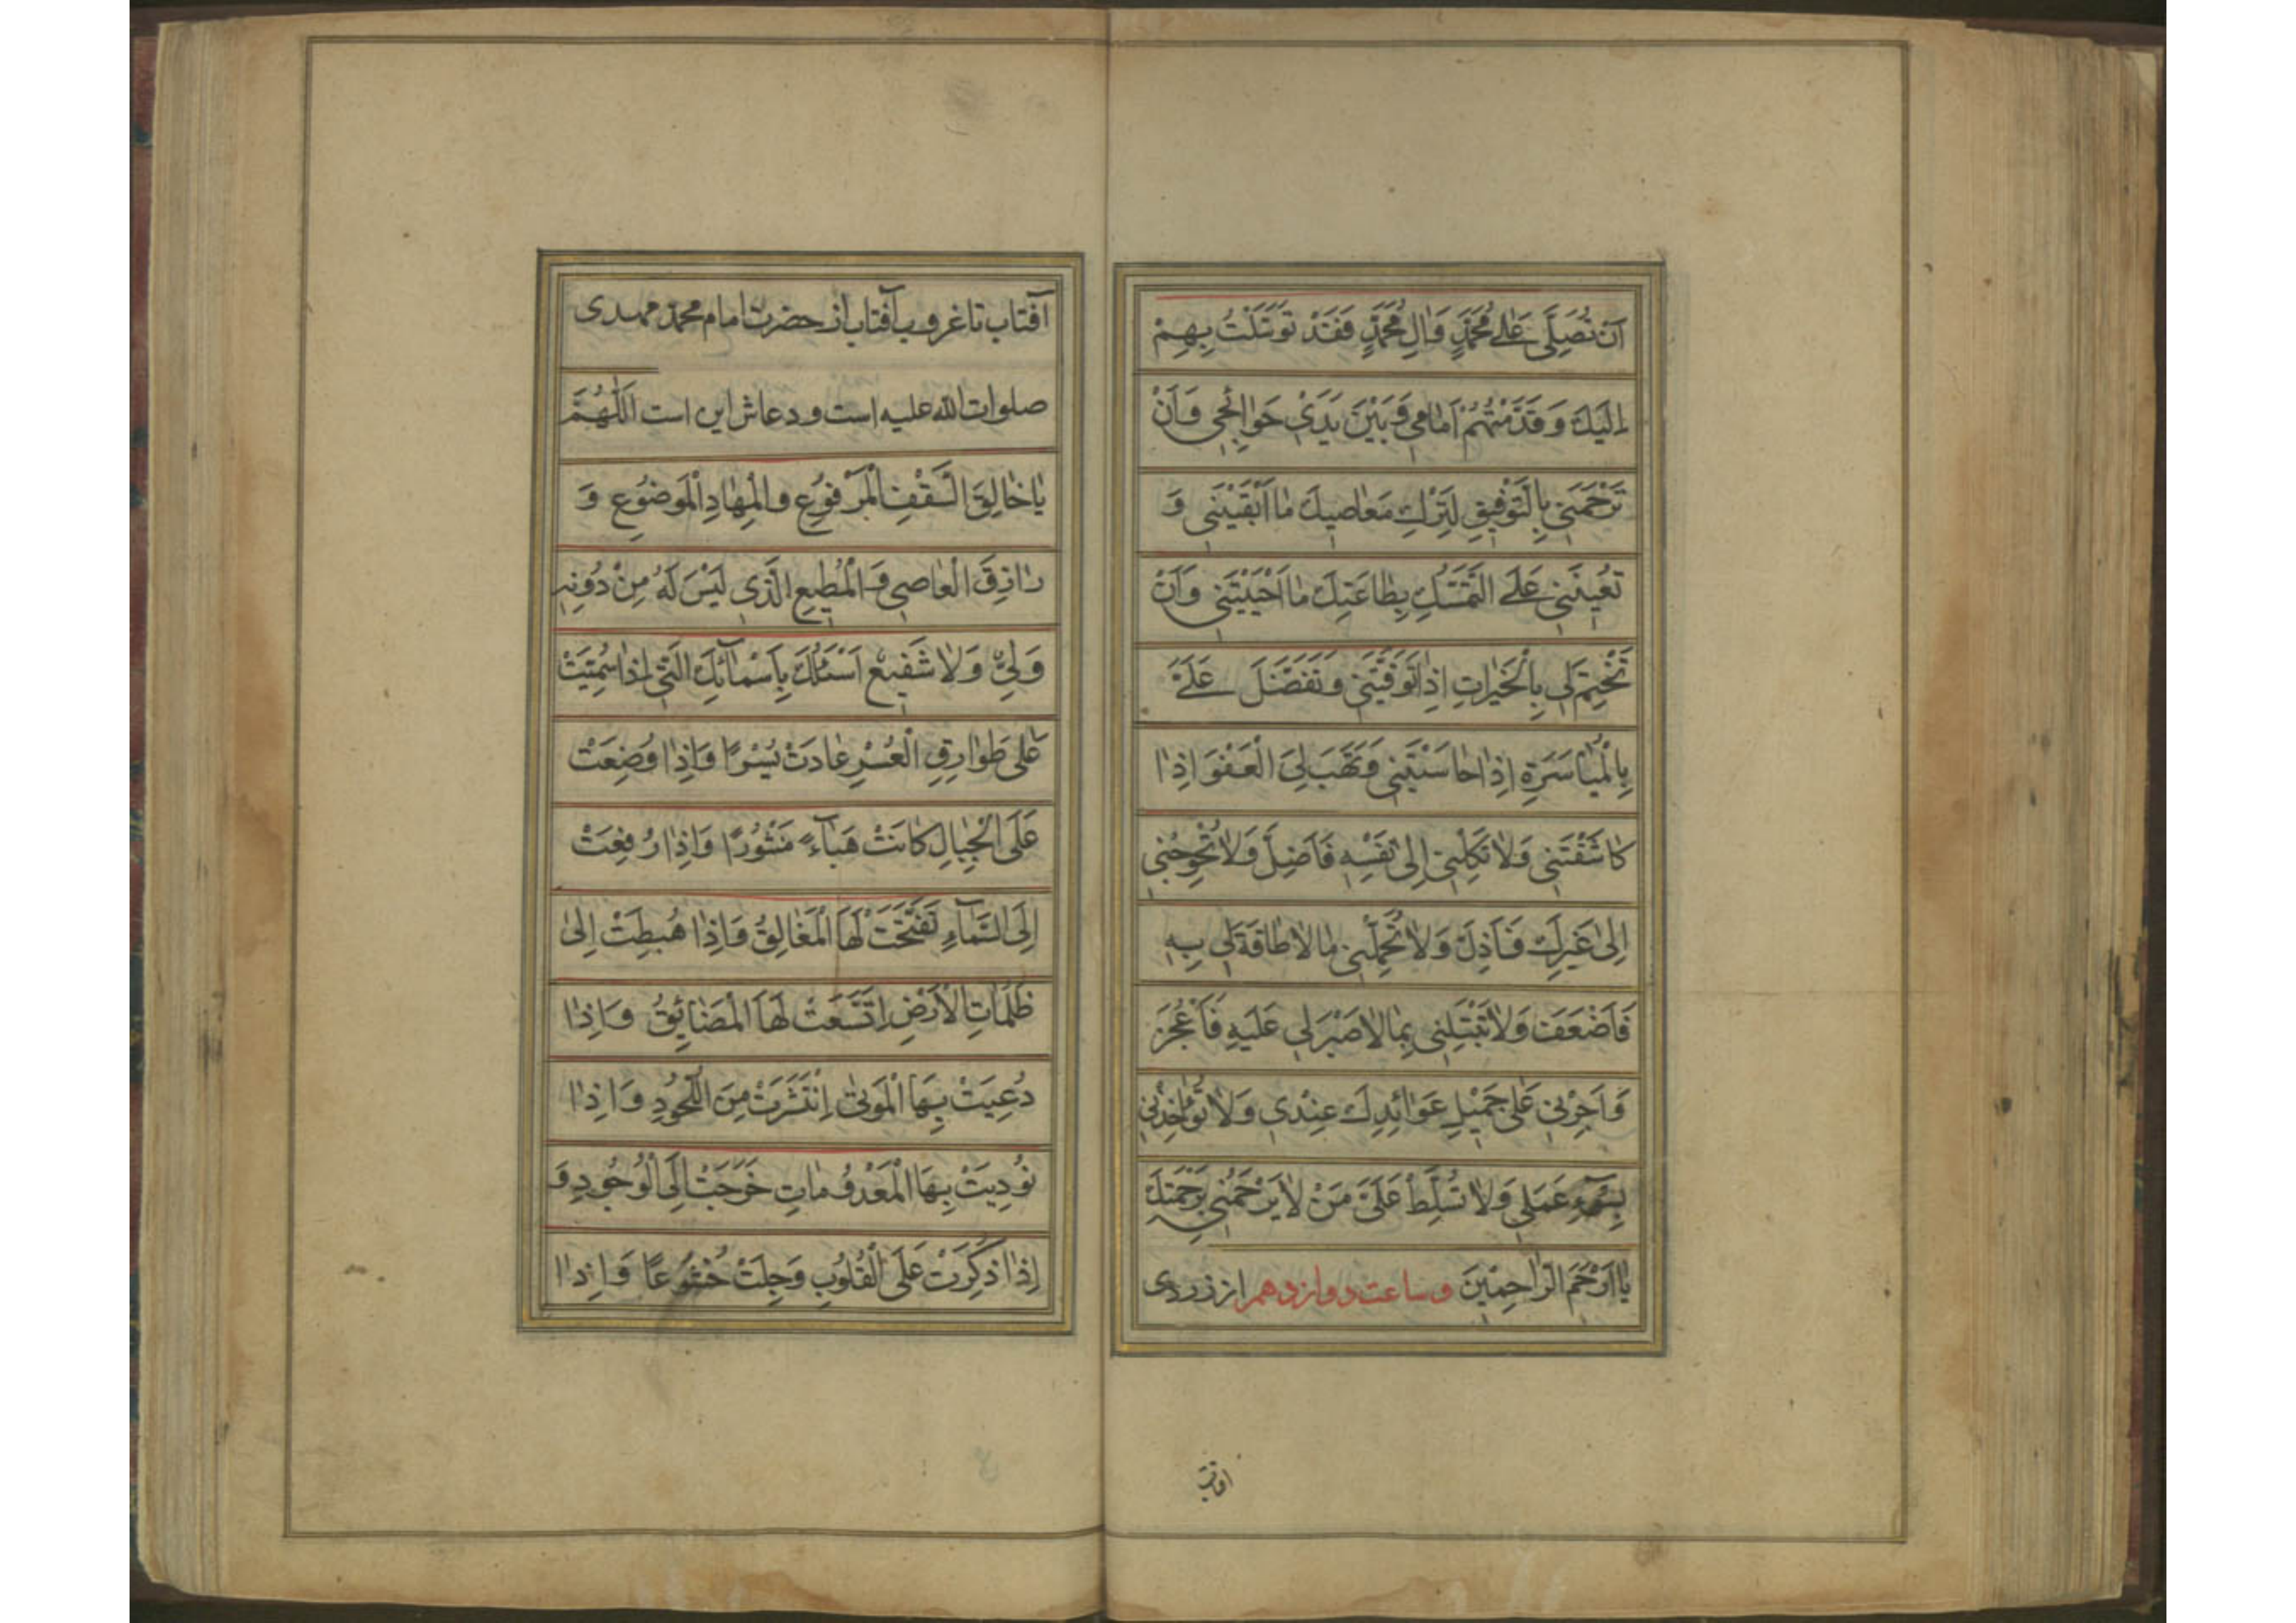 اَنْ تُصَلِّیَ عَلٰی مُحَمَّدٍ وَاٰلِ مُحَمَّدٍ فَقَدْ تَوَسَّلْتُ بِهِمْ
اِلَیْكَ وَقَدَّمْتُهُمْ اَمٰامی وَبَیْنَ یَدَیْ حَوٰائِجی وَاَنْ
تَرْحَمَنی بِالتَّوْفیقِ لِتَرْكِ مَعٰاصیكَ مٰا اَبْقَیْتَنی وَ
تُعینَنی عَلَی التَّمَسُّكِ بِطٰاعَتِكَ مٰا اَحْیَیْتَنی وَاَنْ
تَخْتِمَ لی بِالْخَیْرٰاتِ اِذٰا تَوَفَّیْتَنی وَتَفَضَّلَ عَلَیَّ
بِالْمُیٰاسَرَةِ اِذٰا حٰاسَبْتَنی وَتَهَبَ لِیَ الْعَفْوَ اِذٰا
كٰاشَفْتَنی وَلٰا تَكِلْنی اِلٰی نَفْسی فَاَضِلَّ وَلٰا تُحْوِجْنی
اِلٰی غَیْرِكَ فَاَذِلَّ وَلٰا تُحَمِّلْنی مٰا لٰا طٰاقَةَ لی بِهِ
فَاَضْعَفَ وَلٰا تَبْتَلِنی بِمٰا لٰا صَبْرَ لی عَلَیْهِ فَاَعْجِزَ
وَاَجِرْنی عَلٰی جَمیلِ عَوٰائِدِكَ عِنْدی وَلٰا تُؤٰاخِذْنی
بِسُوٓءِ عَمَلی وَلٰا تُسَلِّطْ عَلَیَّ مَنْ لٰا یَرْحَمُنی بِرَحْمَتِكَ
یٰا اَرْحَمَ الرّٰاحِمینَ وساعت دوازدهم از زردی
افتاب
آفتاب تا غروب آفتاب از حضرت امام محمد مهدی
صلوات الله علیه است و دعاش این است اَللّٰهُمَّ
یٰا خٰالِقَ السَّقْفِ الْمَرْفُوعِ وَالْمِهٰادِ الْمَوْضُوعِ وَ
رٰازِقَ الْعٰاصی وَالْمُطیعِ الَّذی لَیْسَ لَهُ مِنْ دُونِهِ
وَلِیٌّ وَلٰا شَفیعٌ اَسْئَلُكَ بِاَسْمٰآئِكَ الَّتی اِذٰا سُمِّیَتْ
عَلٰی طَوٰارِقِ الْعُسْرِ عٰادَتْ یُسْرًا وَاِذٰا وُضِعَتْ
عَلَی الْجِبٰالِ كٰانَتْ هَبٰآءً مَنْثُورًا وَاِذٰا رُفِعَتْ
اِلَی السَّمٰآءِ تَفَتَّحَتْ لَهَا الْمَغٰالِقُ وَاِذٰا هُبِطَتْ اِلٰی
ظُلُمٰاتِ الْاَرْضِ اِتَّسَعَتْ لَهَا الْمَضٰائِقُ وَاِذٰا
دُعِیَتْ بِهَا الْمَوْتٰی اِنْتَشَرَتْ مِنَ اللُّحُودِ وَاِذٰا
نُودِیَتْ بِهَا الْمَعْدُومٰاتِ خَرَجَتْ اِلَی الْوُجُودِ وَ
اِذٰا ذُكِرَتْ عَلَی الْقُلُوبِ وَجِلَتْ خُشُوعًا وَاِذٰا